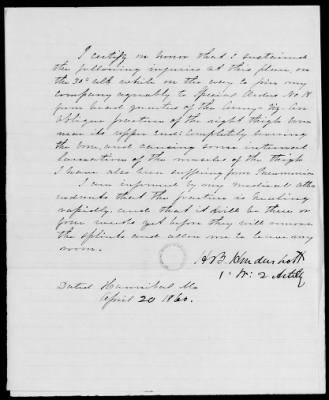 I certify on honor that I sustained
the following injuries at this place on
the 30th ult while on the way to join my
company agreeably to Special Orders No. 18
from head quarters of the Army - viz: An
oblique fracture of the right thigh bone
near its upper end: completely
the bone, and causing some internal
laceration of the muscles of the thigh
I have also been suffering from Pneumonia
I am informed by my medical atte
ndents that the fracture is healing
rapidly: and that it will be three or
four weeks yet before they will remove
the splints and allow me to leave my
room.
H B Hendershott
1st Lt: 2 Artilly
Dated Hannibal Mo
April 20 1860.